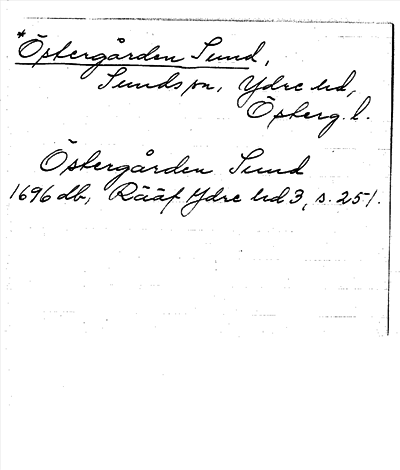 *Östergården Sund,
Sunds sn, Ydre hd,
Österg. l.
Östergården Sund
1696 db, Rääf Ydre hd 3, s. 251.